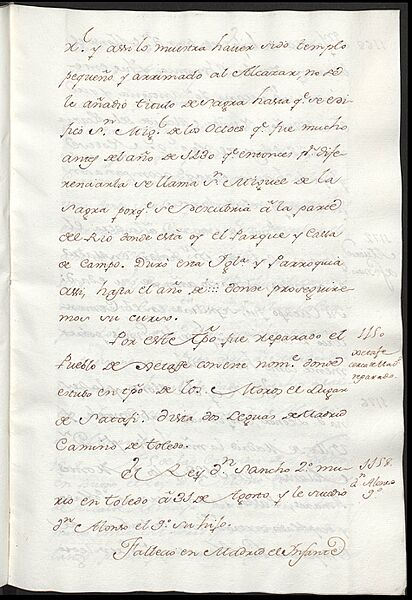 xl. y assi lo muestra haver sido templo
pequeño y arrimado al Alcazar no se
le añadio titulo de Sagra hasta qe. se edi-
ficó Sn. Migl. de los Octoes qe. fue mucho
antes del año de 1230 qe. entonces pa. dife-
renciarla se llamó Sn. Miguel de la
Sagra porqe. se descubria â la parte
del Rio donde esta oy el Parque y Cassa
de Campo. Duró esta Igla. y Parroquia
assi, hasta el año de ::: donde proseguire-
mos su curso.
Por este tpo. fue reparado el
Pueblo de Getafe con este nome. donde
estubo en tpo. de los Moros el Lugar
de Satafi. dista dos Leguas de Madrid
Camino de Toledo.
1150
Getafe
reparado.
El Rey Dn. Sancho 2º. mu-
rio en Toledo à 31 de Agosto y le sucedio
Dn. Alonso el 9º. su hijo.
1158.
Dn. Alonso
9º
Fallecio en Madrid el Infante